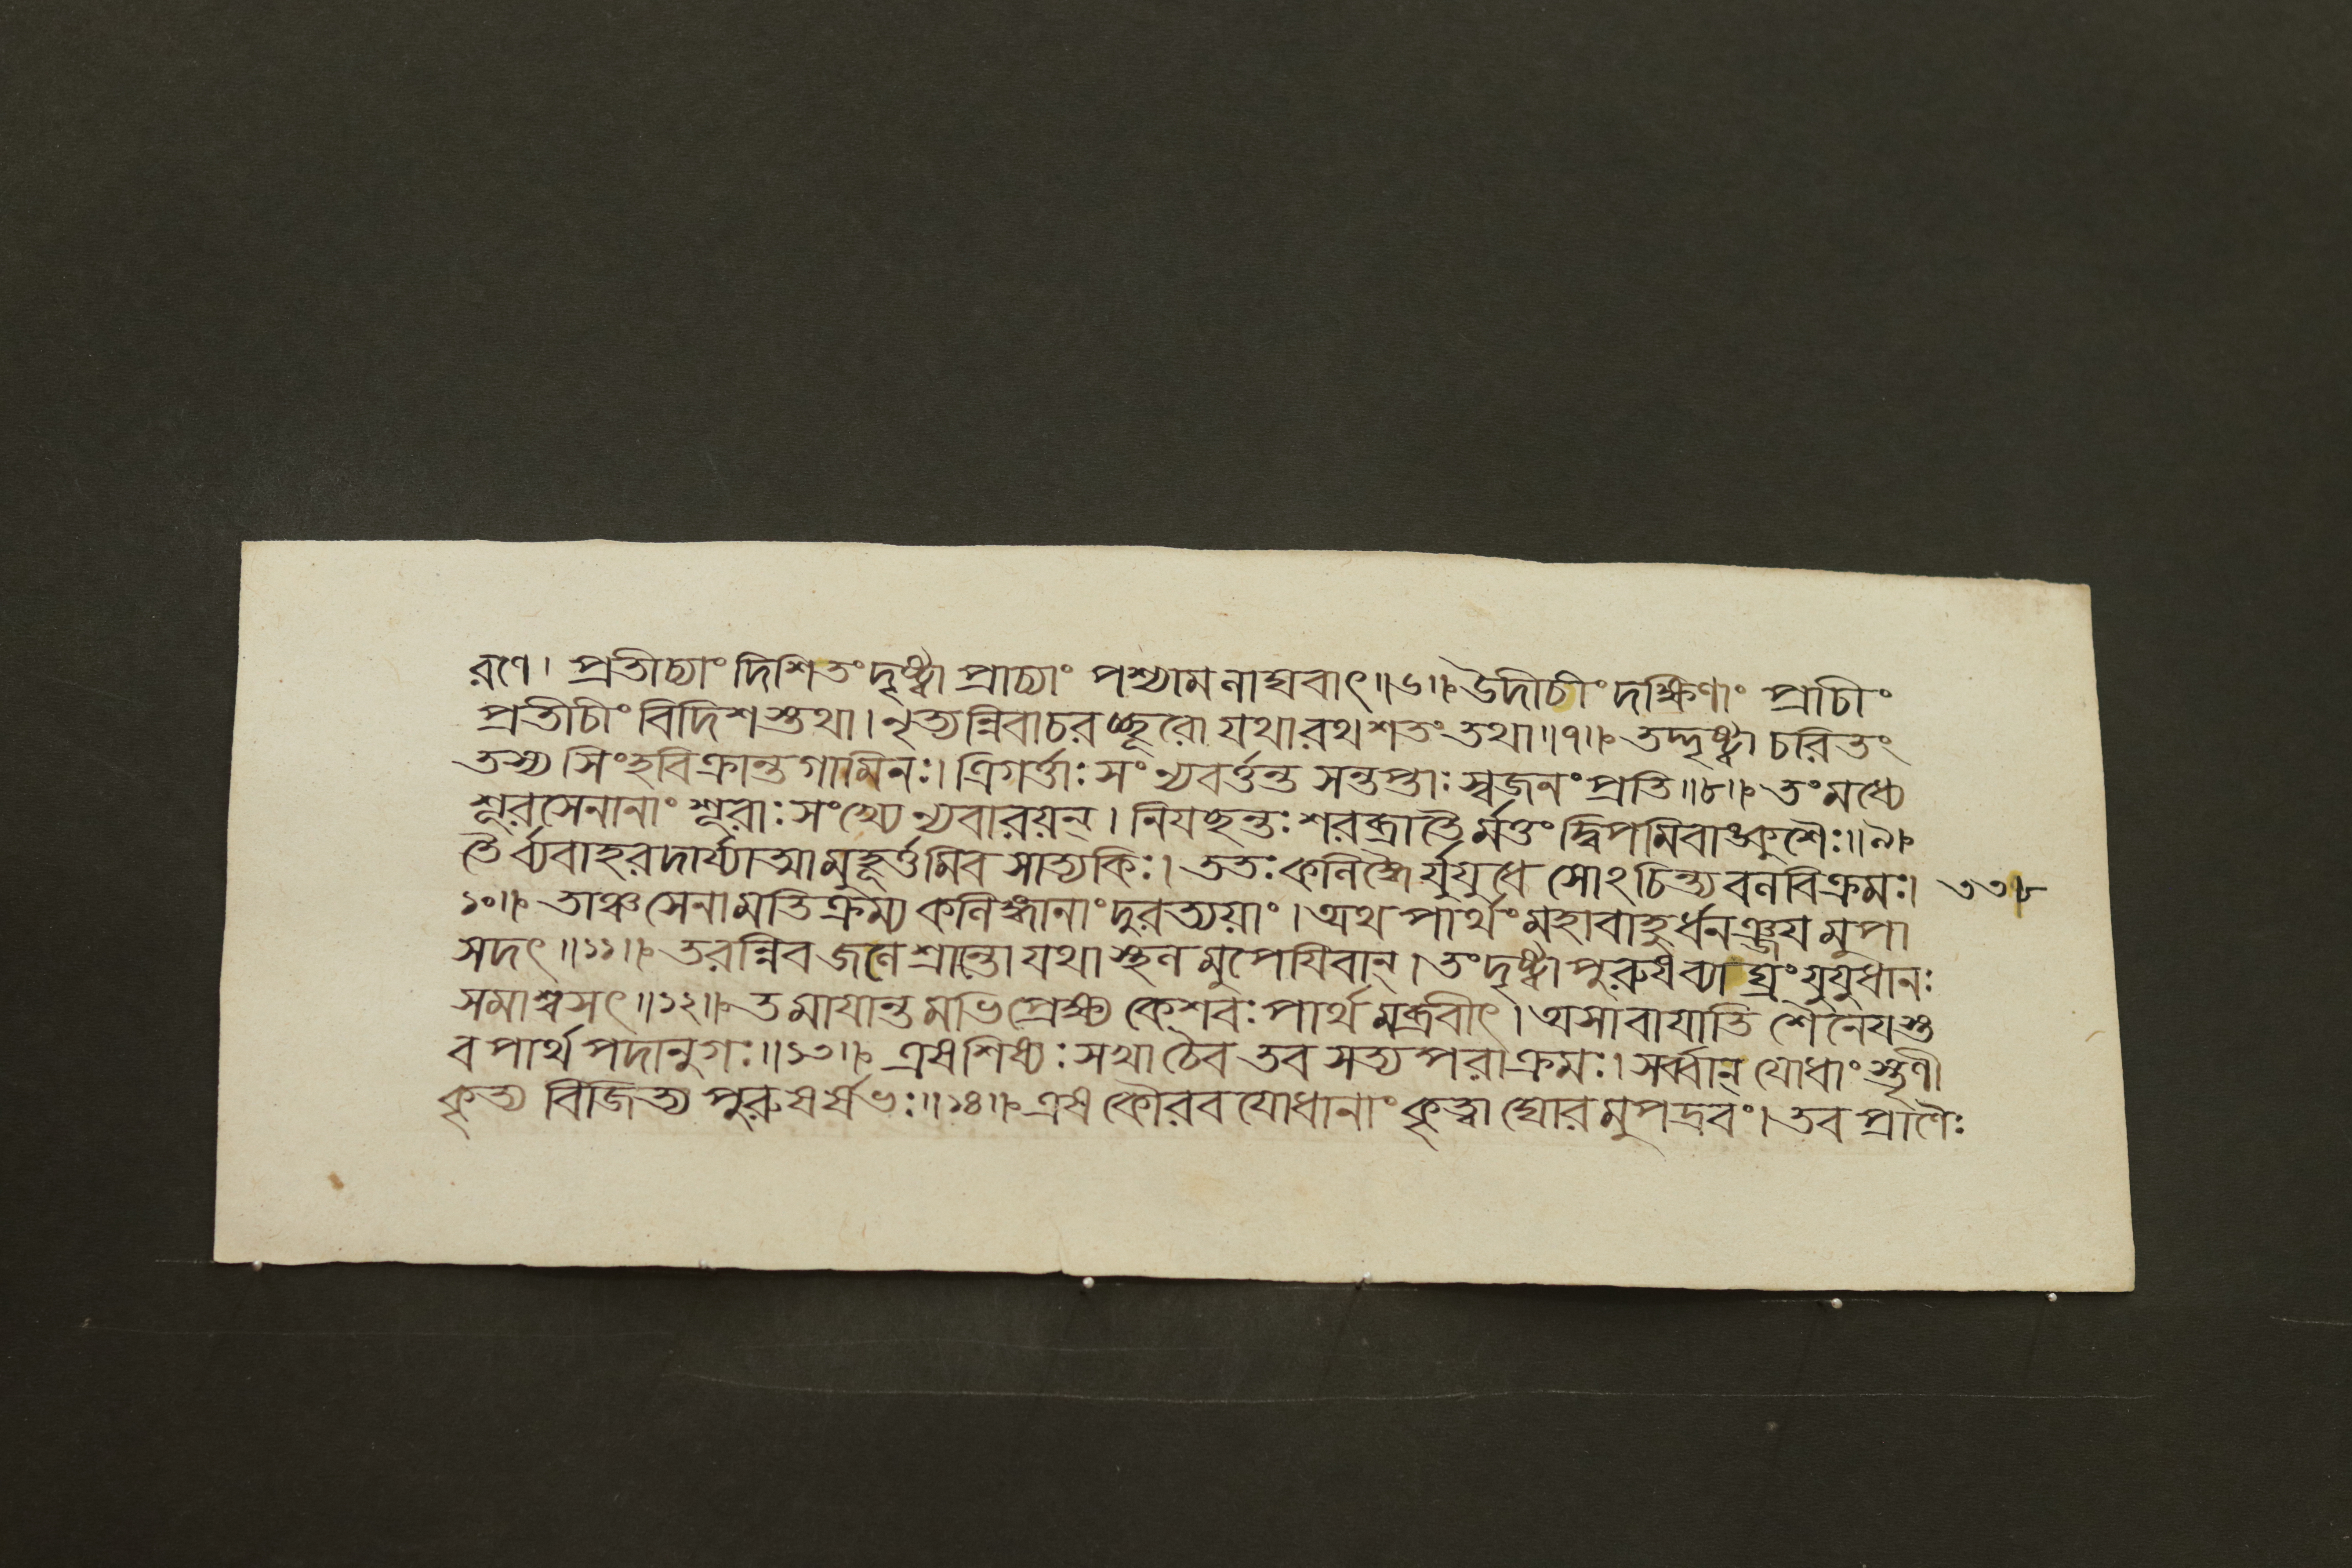 রণে। প্রতীচ্যাং দিশি তং দৃষ্ট্বা প্রাচ্যাং পশ্যাম লাঘবাৎ॥৬॥ উদীচীং দক্ষিণাং প্রাচীং
প্রতীচীং বিদিশস্তথা। নৃত্যন্নিবাচরচ্ছূরো যথা রথশতং তথা॥৭॥ তদ্দৃষ্ট্বা চরিতং
তস্য সিংহবিক্রান্তগামিনঃ। ত্রিগর্ত্তাঃ সংন্যবর্ত্তন্ত সন্তপ্তাঃ স্বজনং প্রতি॥৮॥ তং মধ্যে
শূরসেনানাং শূরাঃ সংখ্যে ন্যবারয়ন্। নিযছন্তঃ শরব্রাতৈর্মত্তং দ্বিপমিবাঙ্কুশৈঃ॥৯॥
তৈর্ব্যবাহরদার্য্যাত্মা মুহূর্ত্তমিব সাত্যকিঃ। ততঃ কলিঙ্গৈর্যুযুধে সোঽচিন্ত্যবলবিক্রমঃ। ৩৩৮
১০॥ তাঞ্চ সেনামতিক্রম্য কলিঙ্গানাং দুরত্যয়াং। অথ পার্থং মহাবাহুর্ধনঞ্জয়মুপা
সদৎ॥১১॥ তরন্নিব জলে শ্রান্তো যথা স্থলমুপেযিবান্। তং দৃষ্ট্বা পুরুষব্যাঘ্রং যুযুধানঃ
সমাশ্বসৎ॥১২॥ তমাযান্তমভিপ্রেক্ষ্য কেশবঃ পার্থমব্রবীৎ। অসাবাযাতি শৈনেযস্ত
ব পার্থ পদানুগঃ॥১৩॥ এষ শিষ্যঃ সখা চৈব তব সত্যপরাক্রমঃ। সর্ব্বান্ যোধাংস্তৃণী
কৃত্য বিজিত্য পুরুষর্ষভঃ॥১৪॥ এষ কৌরবযোধানাং কৃত্বা ঘোরমুপদ্রবং। তব প্রাণৈঃ